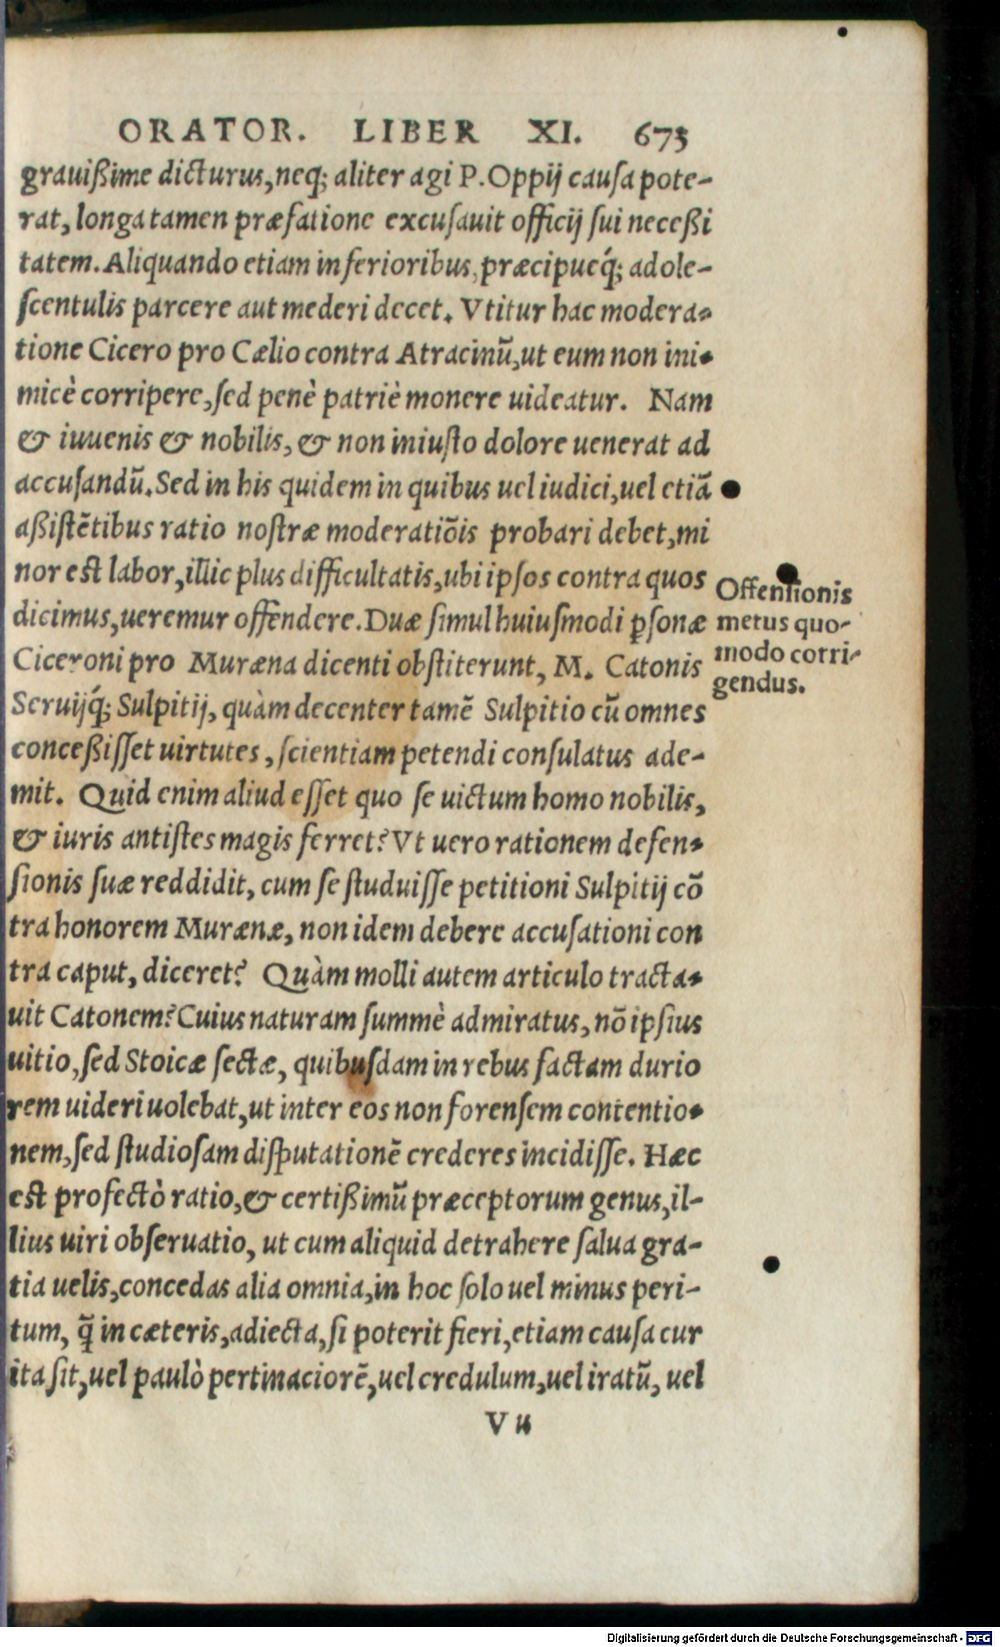 ORATOR. LIBER XI. 673
grauißime dicturus, neq; aliter agi P. Oppij causa pote-
rat, longa tamen præfatione excusauit officij sui neceßi
tatem. Aliquando etiam inferioribus, præcipueq́; adole-
scentulis parcere aut mederi decet. Vtitur hac modera-
tione Cicero pro Cælio contra Atracinũ, ut eum non ini-
micè corripere, sed penè patriè monere uideatur. Nam
& iuuenis & nobilis, & non iniusto dolore uenerat ad
accusandũ. Sed in his quidem in quibus uel iudici, uel etiã
aßistẽtibus ratio nostræ moderatiõis probari debet, mi
nor est labor, illic plus difficultatis, ubi ipsos contra quos
dicimus, ueremur offendere. Duæ simul huiusmodi ꝑsonæ
Ciceroni pro Muræna dicenti obstiterunt, M. Catonis
Seruijq́; Sulpitij, quàm decenter tamẽ Sulpitio cũ omnes
conceßisset uirtutes, scientiam petendi consulatus ade-
mit. Quid enim aliud esset quo se uictum homo nobilis,
& iuris antistes magis ferret? Vt uero rationem defen-
sionis suæ reddidit, cum se studuisse petitioni Sulpitij cõ
tra honorem Murænæ, non idem debere accusationi con
tra caput, diceret? Quàm molli autem articulo tracta-
uit Catonem? Cuius naturam summè admiratus, nõ ipsius
uitio, sed Stoicæ sectæ, quibusdam in rebus factam durio
rem uideri uolebat, ut inter eos non forensem contentio-
nem, sed studiosam disputationẽ crederes incidisse. Hæc
est profectò ratio, & certißimũ præceptorum genus, il-
lius uiri obseruatio, ut cum aliquid detrahere salua gra-
tia uelis, concedas alia omnia, in hoc solo uel minus peri-
tum, q̃ in cæteris, adiecta, si poterit fieri, etiam causa cur
ita sit, uel paulò pertinaciorẽ, uel credulum, uel iratũ, uel
V u
Offensionis
metus quo-
modo corri-
gendus.
Digitalisierung gefördert durch die Deutsche Forschungsgemeinschaft - DFG